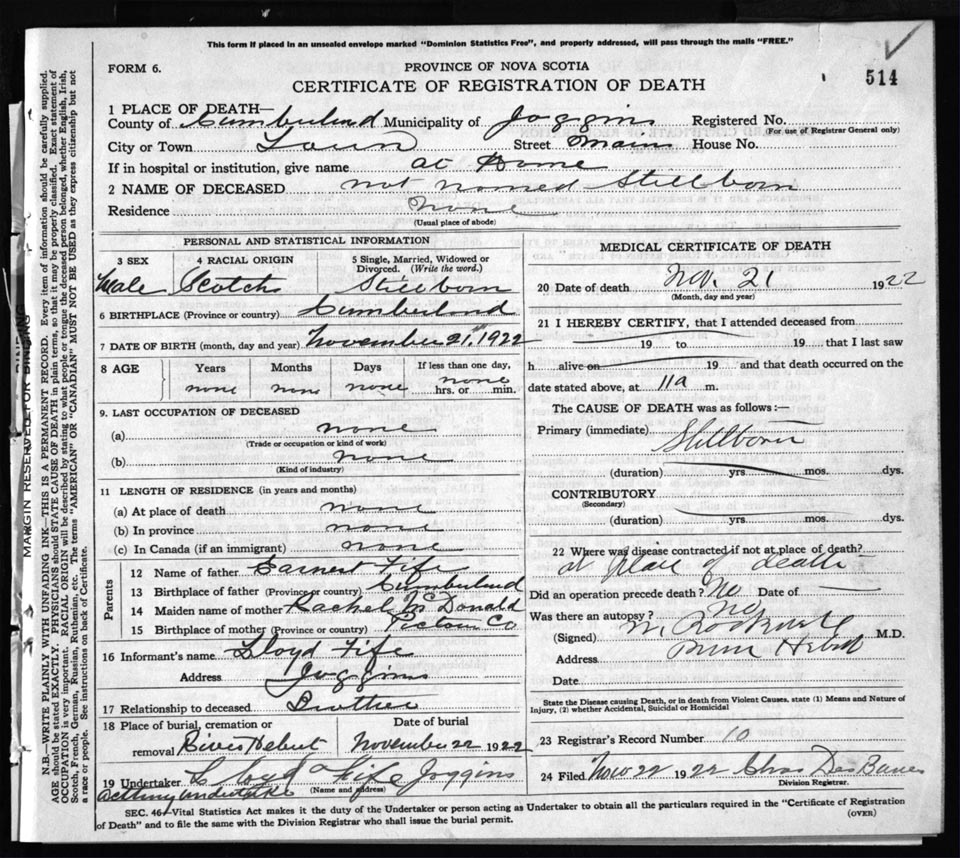 This form if placed in an unsealed envelope marked "Dominion Statistics Free", and properly addressed, will pass through the mails "FREE."
FORM 6.
PROVINCE OF NOVA SCOTIA
CERTIFICATE OF REGISTRATION OF DEATH
514
1 PLACE OF DEATH—
County of Cumberland Municipality of Joggins Registered No.
(For use of Registrar General only)
City or Town Town Street Main House No.
If in hospital or institution, give name at Home
2 NAME OF DECEASED not named Stillborn
Residence None
(Usual place of abode)
PERSONAL AND STATISTICAL INFORMATION
3 SEX 4 RACIAL ORIGIN 5 Single, Married, Widowed or Divorced. (Write the word.)
Male Scotch Stillborn
6 BIRTHPLACE (Province or country) Cumberland
7 DATE OF BIRTH (month, day and year) November 21, 1922
8 AGE Years Months Days If less than one day,
none none none none hrs. or min.
9. LAST OCCUPATION OF DECEASED
(a) none
(Trade or occupation or kind of work)
(b) none
(Kind of industry)
11 LENGTH OF RESIDENCE (in years and months)
(a) At place of death none
(b) In province none
(c) In Canada (if an immigrant) none
Parents
12 Name of father Earnest Fife
13 Birthplace of father (Province or country) Cumberland
14 Maiden name of mother Rachel McDonald
15 Birthplace of mother (Province or country) Pictou Co
16 Informant's name Lloyd Fife
Address Joggins
17 Relationship to deceased Brother
18 Place of burial, cremation or removal River Hebert
Date of burial November 22 1922
19 Undertaker Lloyd Fife Joggins
(Name and address)
Acting Undertaker
MEDICAL CERTIFICATE OF DEATH
20 Date of death Nov. 21 1922
(Month, day and year)
21 I HEREBY CERTIFY, that I attended deceased from
19 to 19 that I last saw
h alive on 19 and that death occurred on the
date stated above, at 11 a m.
The CAUSE OF DEATH was as follows:—
Primary (immediate) Stillborn
(duration) yrs. mos. dys.
CONTRIBUTORY
(Secondary)
(duration) yrs. mos. dys.
22 Where was disease contracted if not at place of death?
at place of death
Did an operation precede death? No Date of
Was there an autopsy? No
(Signed) W. Rockwell M.D.
Address River Hebert
Date
State the Disease causing Death, or in death from Violent Causes, state (1) Means and Nature of Injury, (2) whether Accidental, Suicidal or Homicidal
23 Registrar's Record Number 10
24 Filed Nov 22 1922 Chas Des Barres
Division Registrar.
SEC. 46—Vital Statistics Act makes it the duty of the Undertaker or person acting as Undertaker to obtain all the particulars required in the "Certificate of Registration
of Death" and to file the same with the Division Registrar who shall issue the burial permit.
(OVER)
MARGIN RESERVED FOR BINDING
N.B.—WRITE PLAINLY WITH UNFADING INK—THIS IS A PERMANENT RECORD. Every item of information should be carefully supplied.
AGE should be stated EXACTLY. PHYSICIANS should STATE CAUSE OF DEATH in plain terms, so that it may be properly classified. Exact statement of
OCCUPATION is very important. RACIAL ORIGIN will be described by stating to what people or tongue the deceased person belonged, whether English, Irish,
Scotch, French, German, Russian, Ruthenian, etc. The terms "AMERICAN" OR "CANADIAN" MUST NOT BE USED as they express citizenship but not
a race or people. See instructions on back of Certificate.